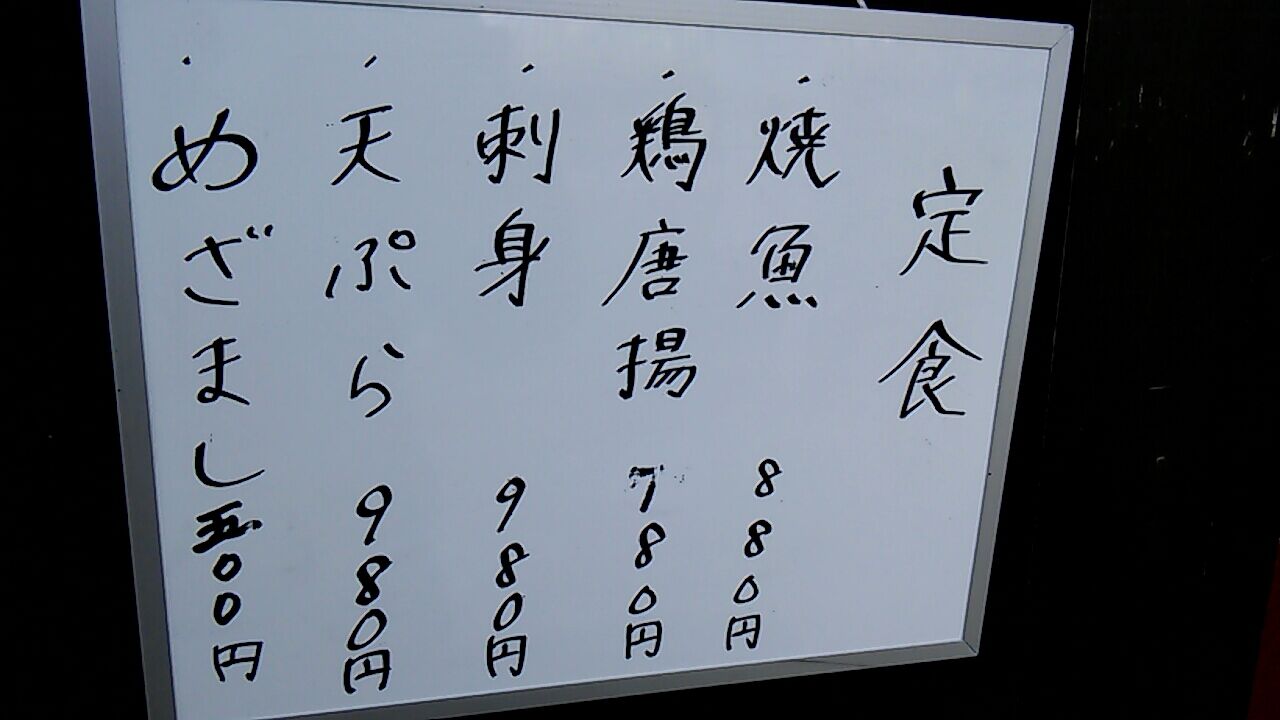 定食
・焼魚 880円
・鶏唐揚 780円
・刺身 980円
・天ぷら 980円
・めざまし 五00円